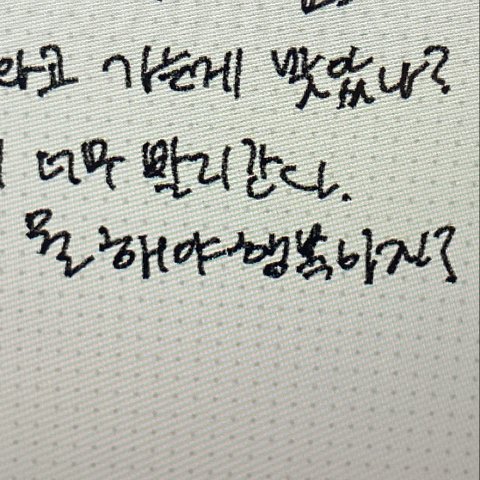 라고 가는게 맞았나?
너무 빨리간다.
뭘 해야 행복하지?